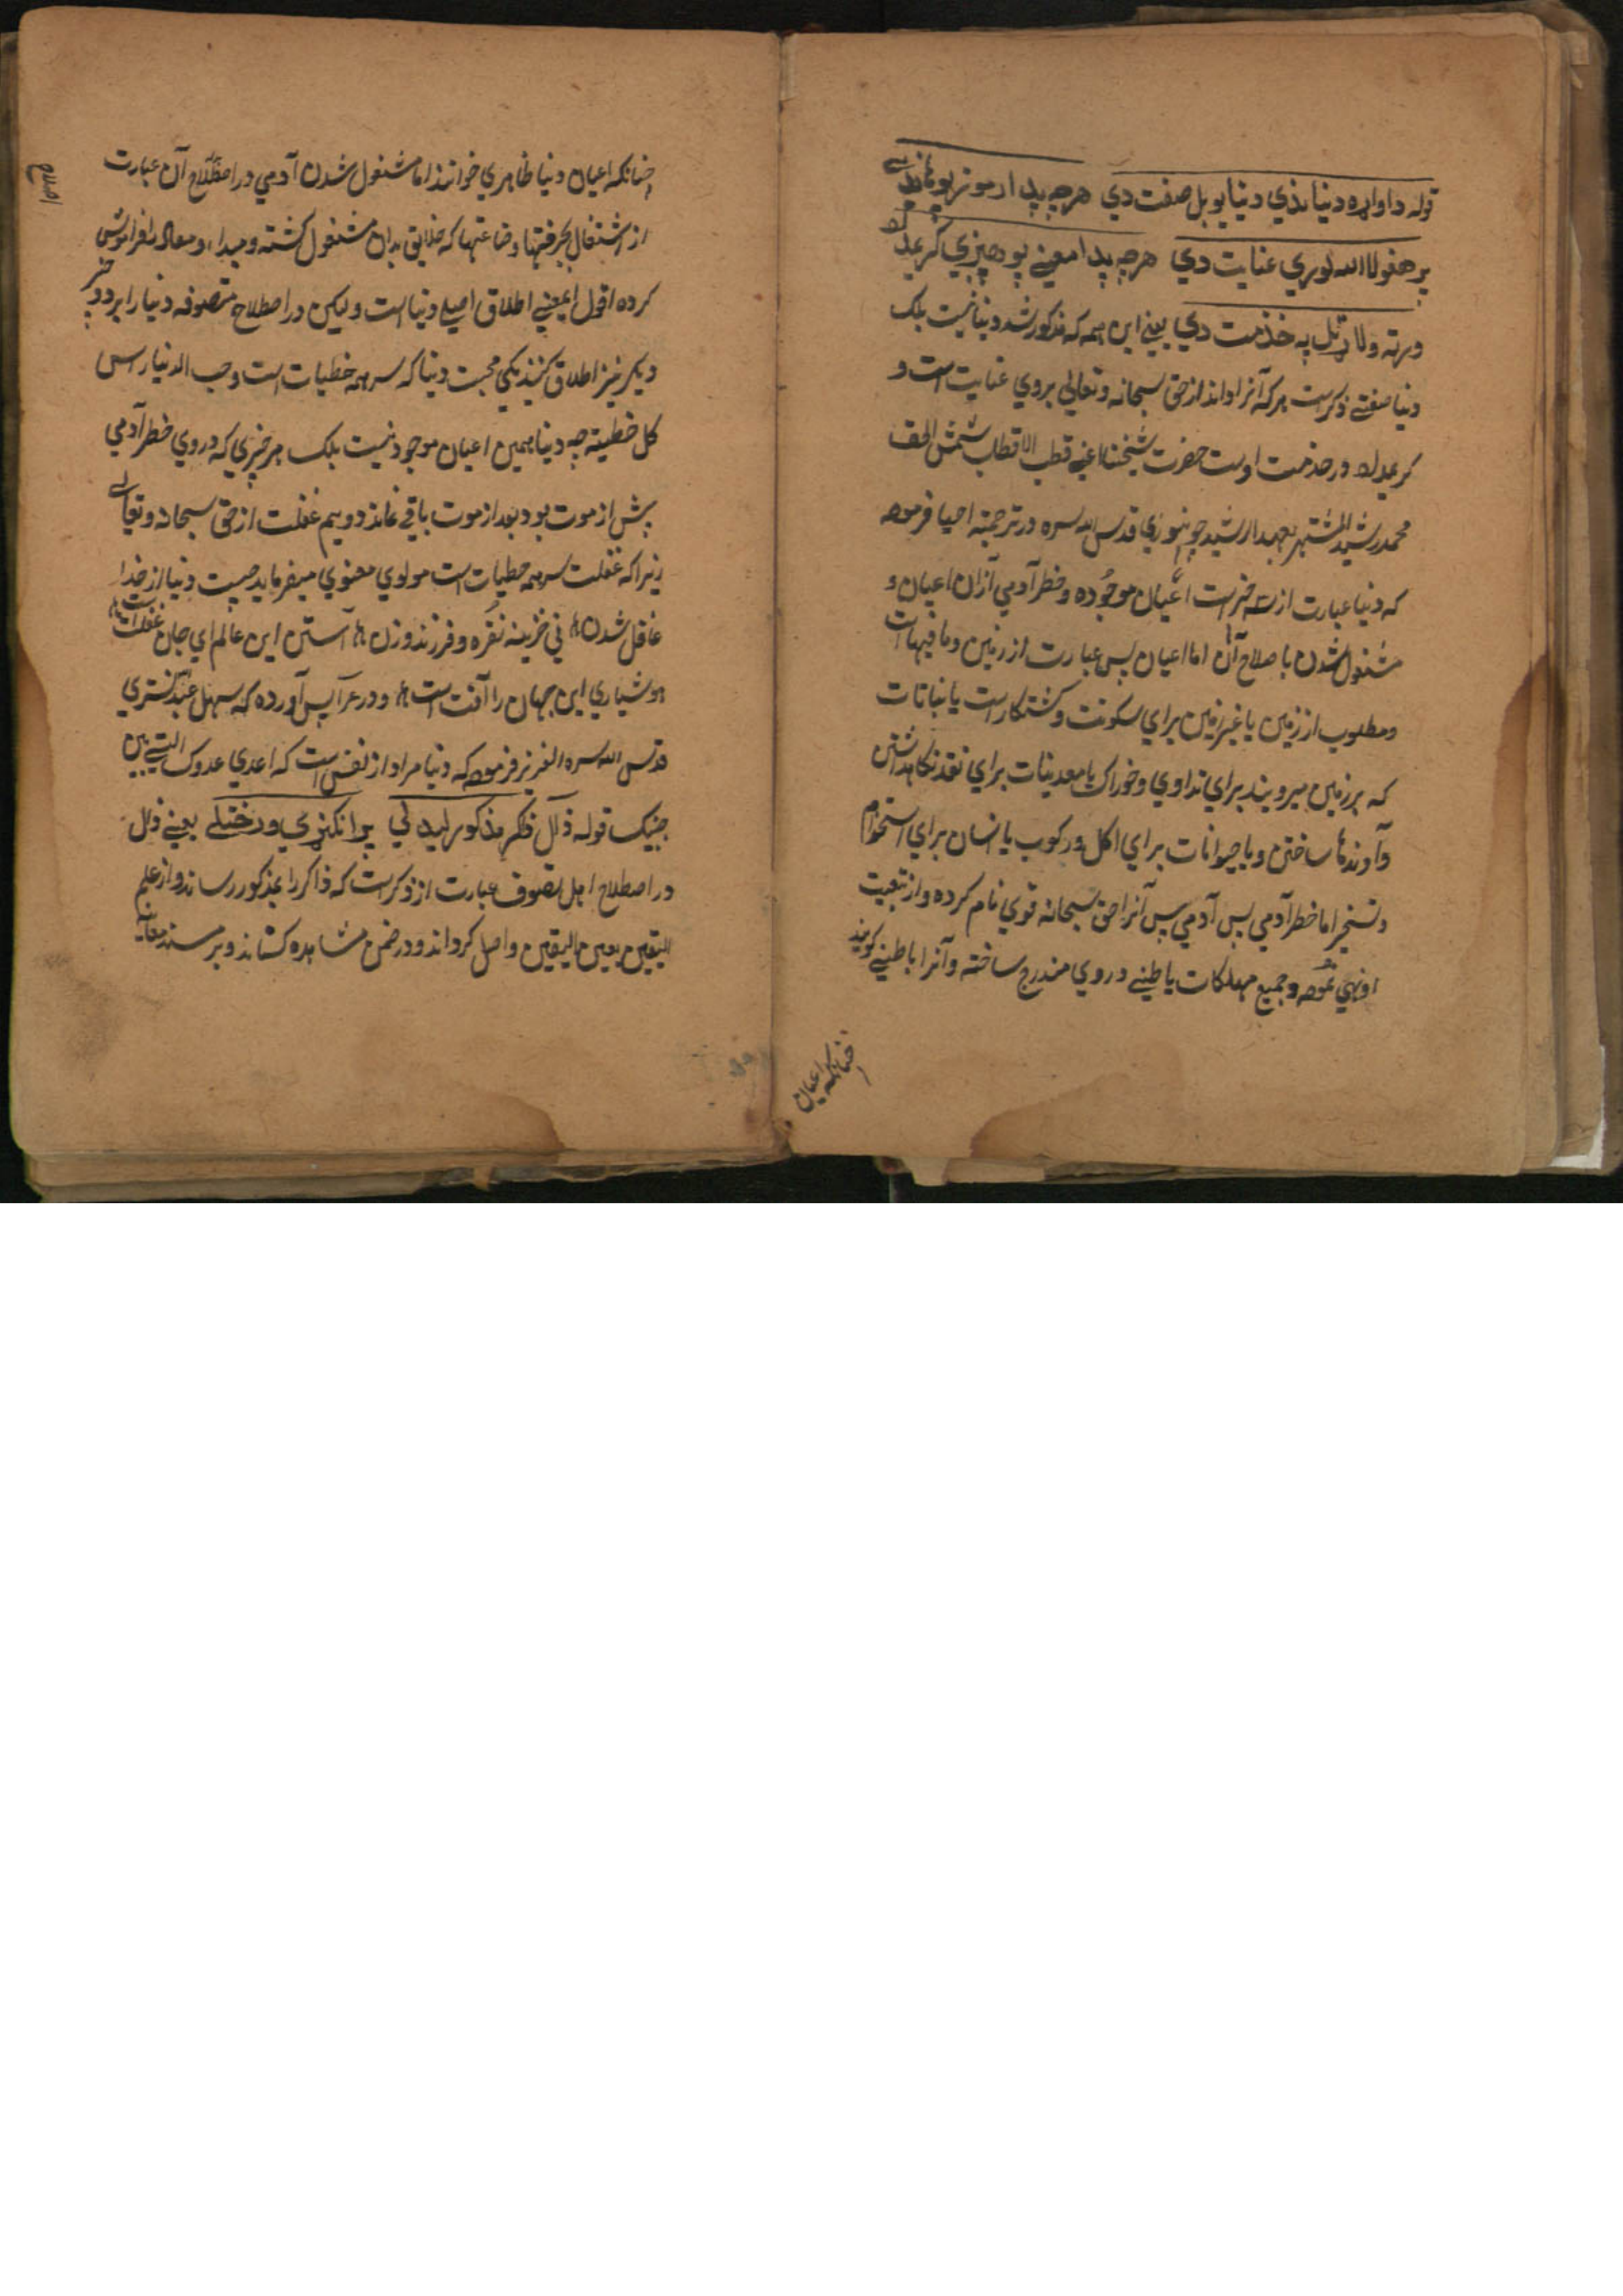 قوله دا واړه دنیا ندي دنیا یو بل صفت دي هر چه پدا رموز پوهندي
پر هغو لا الله لوري عنایت دي هر چه پدا معني پوهیږي کر عدل
ورته ولاړ تل په خذمت دي یعنی این همه که مذکور شد دنیا نیست بلک
دنیا صفتی دکرست هر که آنرا داند از حق سبحانه وتعالی بروي عنایت است و
در خدمت اوست حضرت شیخنا اعنی قطب الاقطاب شمس الحق
محمد رشید المشتهر بعبد الرشید جونپوري قدس الله سره در ترجمة احیا فرموده
که دنیا عبارت از سه خیر است اعیان موجوده وخطر آدمي آزان اعیان و
مشغول شدن باصلاح آن اما اعیان پس عبارت از زمین وما فیهاست
ومطلوب از زمین یا غیر زمین براي سکونت وکشتکار است یا نباتات
که بر زمین میرویند براي تداوي وخوراک یا معدنیات براي نقد نکاهداشتن
وآوندها ساختن ویا حیوانات براي اکل ورکوب یا انسان براي استخدام
وتسخیر اما خطر آدمي پس آدمي پس آنرا حق سبحانه قوي نام کرده واز تبعیت
او نهي نموده وجمیع مهلکات باطنی در وي مندرج ساخته وآنرا باطنی کویند
چنانکه اعیان
چنانکه اعیان دنیا ظاهري خوانند اما مشغول شدن آدمي در اصطلاح آن عبارت
اصلاح
از اشتغال بحرفتها وصناعتها که خلایق بدان مشغول کشته ومبداء ومعاد را فراموش
کرده اقول اینمعني اطلاق اصلي دنیا است ولیکن در اصطلاح متصوفه دنیا را بر دو چیز
دیکر نیز اطلاق کنند یکي محبت دنیا که سر همه خطیات است وحب الدنیا راس
کل خطیئة چه دنیا همین اعیان موجود نیست بلک هر چیزي که در وي خطر آدمي
پیش از موت بود بعد از موت باقي نماند دویم غفلت از حق سبحانه وتعالی
زیرا که غفلت سر همه خطیات است مولوي معنوي میفرماید چیست دنیا از خدا
غافل شدن ني خزینه نقره وفرزند وزن استن این عالم اي جان غفلت است
هوشیاري این جهان را آفت است ودر عرایس آورده که سهل عبد تستري
قدس الله سره العزیز فرموده که دنیا مراد از نفس است که اعدي عدوک التي بین
جنبیک قوله ذال ذکر مذکور لیدل کي یعني ذال
در اصطلاح اهل تصوف عبارت از ذکرست که ذاکر را بمذکور رساند واز علم
الیقین بعین الیقین واصل کرداند ودر ضمن مشاهده کشاند